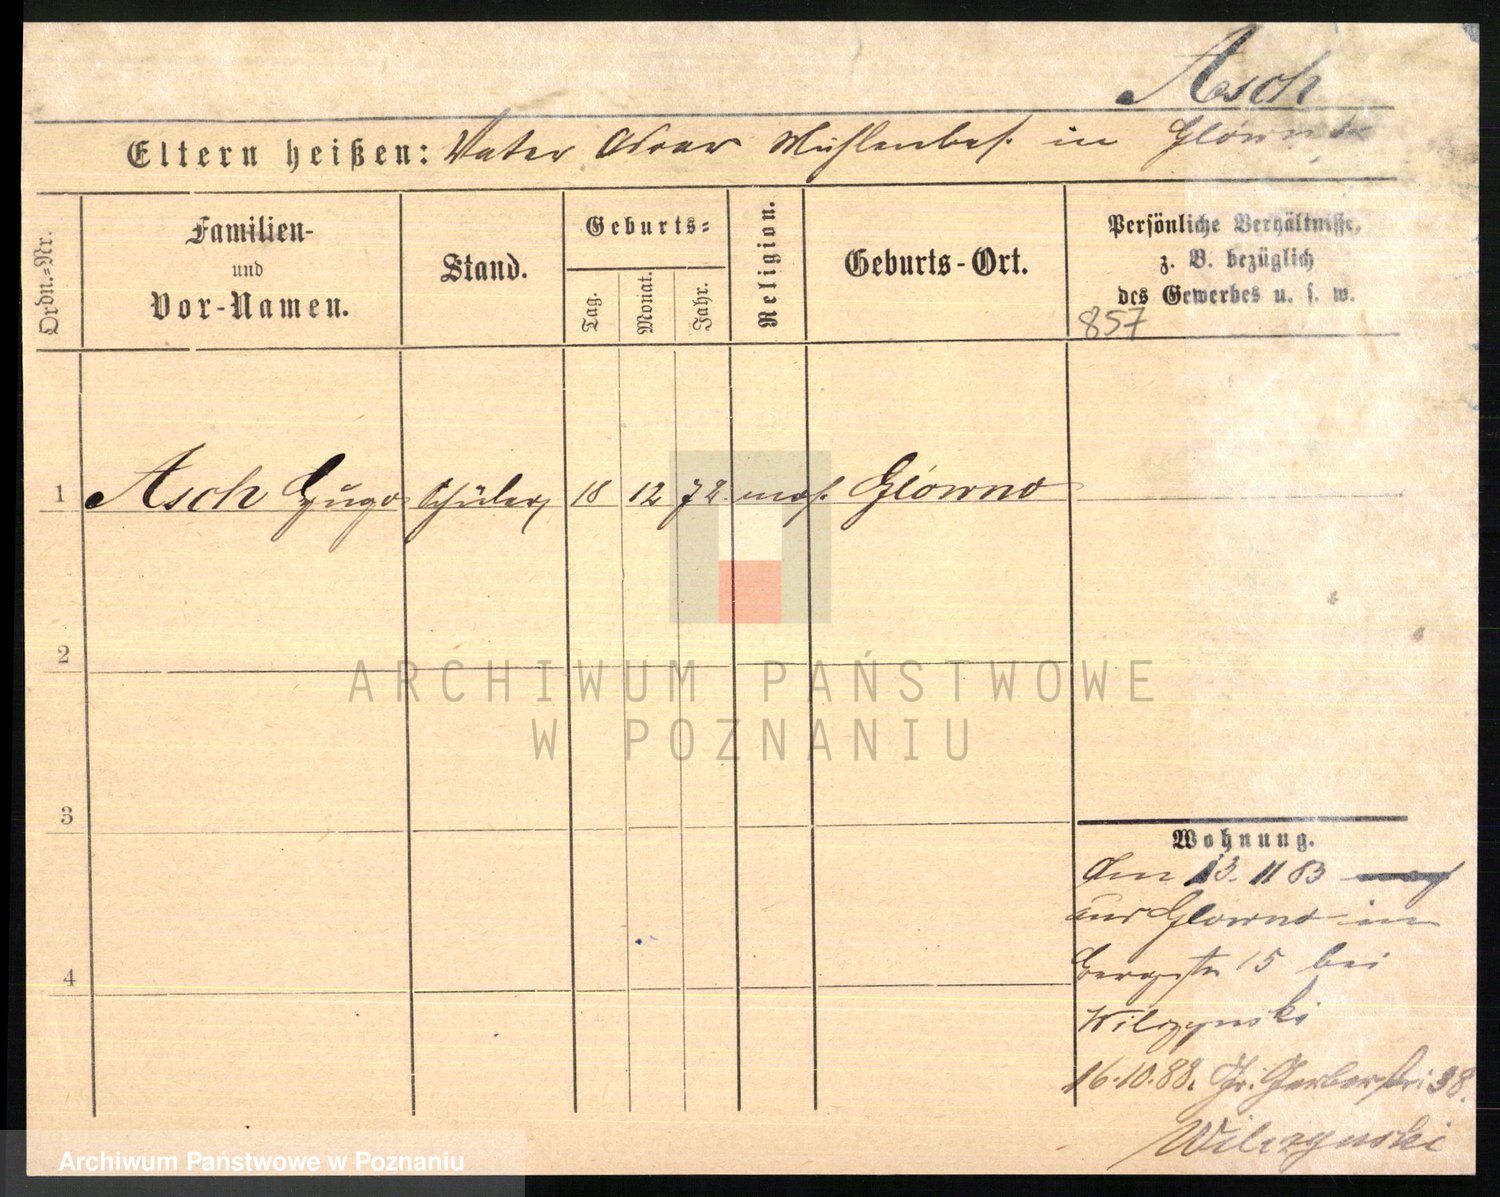 Asch
Eltern heißen: Vater Mühlenbes. in Glówno
Ordn.=Nr.
Familien-
und
Vor-Namen.
Stand.
Geburts=
Tag.
Monat.
Jahr.
Religion.
Geburts-Ort.
Persönliche Verhältnisse,
z. B. bezüglich
des Gewerbes u. s. w.
857
1 Asch Hugo Schüler 18 12 72. mos. Glówno
2
3
4
Wohnung.
Den 13. 11 83
aus Glowno in
Bergstr 15 bei
Wilczynski
16.10.88. Gr. Gerberstr: 38.
Wilczynski
ARCHIWUM PAŃSTWOWE
W POZNANIU
Archiwum Państwowe w Poznaniu